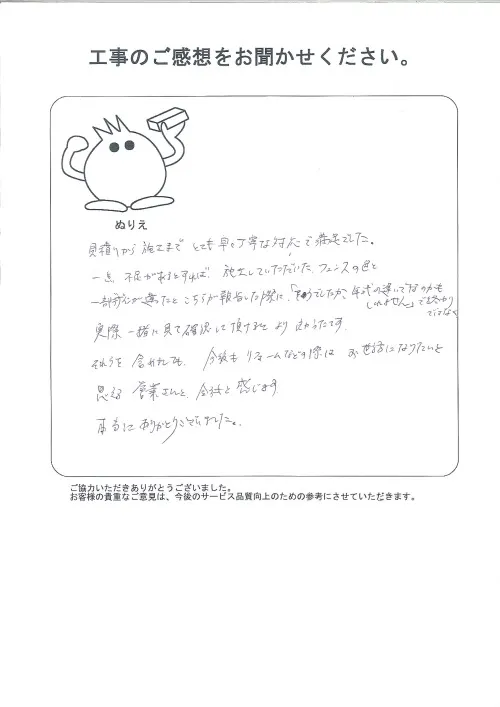 工事のご感想をお聞かせください。
ぬりえ
見積りから施工まで とても早く丁寧な対応で満足でした。
一点 不足があるとすれば、施工していただいた フェンスの色と
一部部分が違ったと こちらが報告した際に、「そうでしたか、年式の違いでなのかも
しれません」で終わり
ではなく
実際 一緒に見て確認して頂けると より 良かったです。
それらを含めても、今後も リフォームなどの際は お世話になりたいと
思える 営業さんと 会社と 感じます
本当に ありがとうございました。
ご協力いただきありがとうございました。
お客様の貴重なご意見は、今後のサービス品質向上のための参考にさせていただきます。